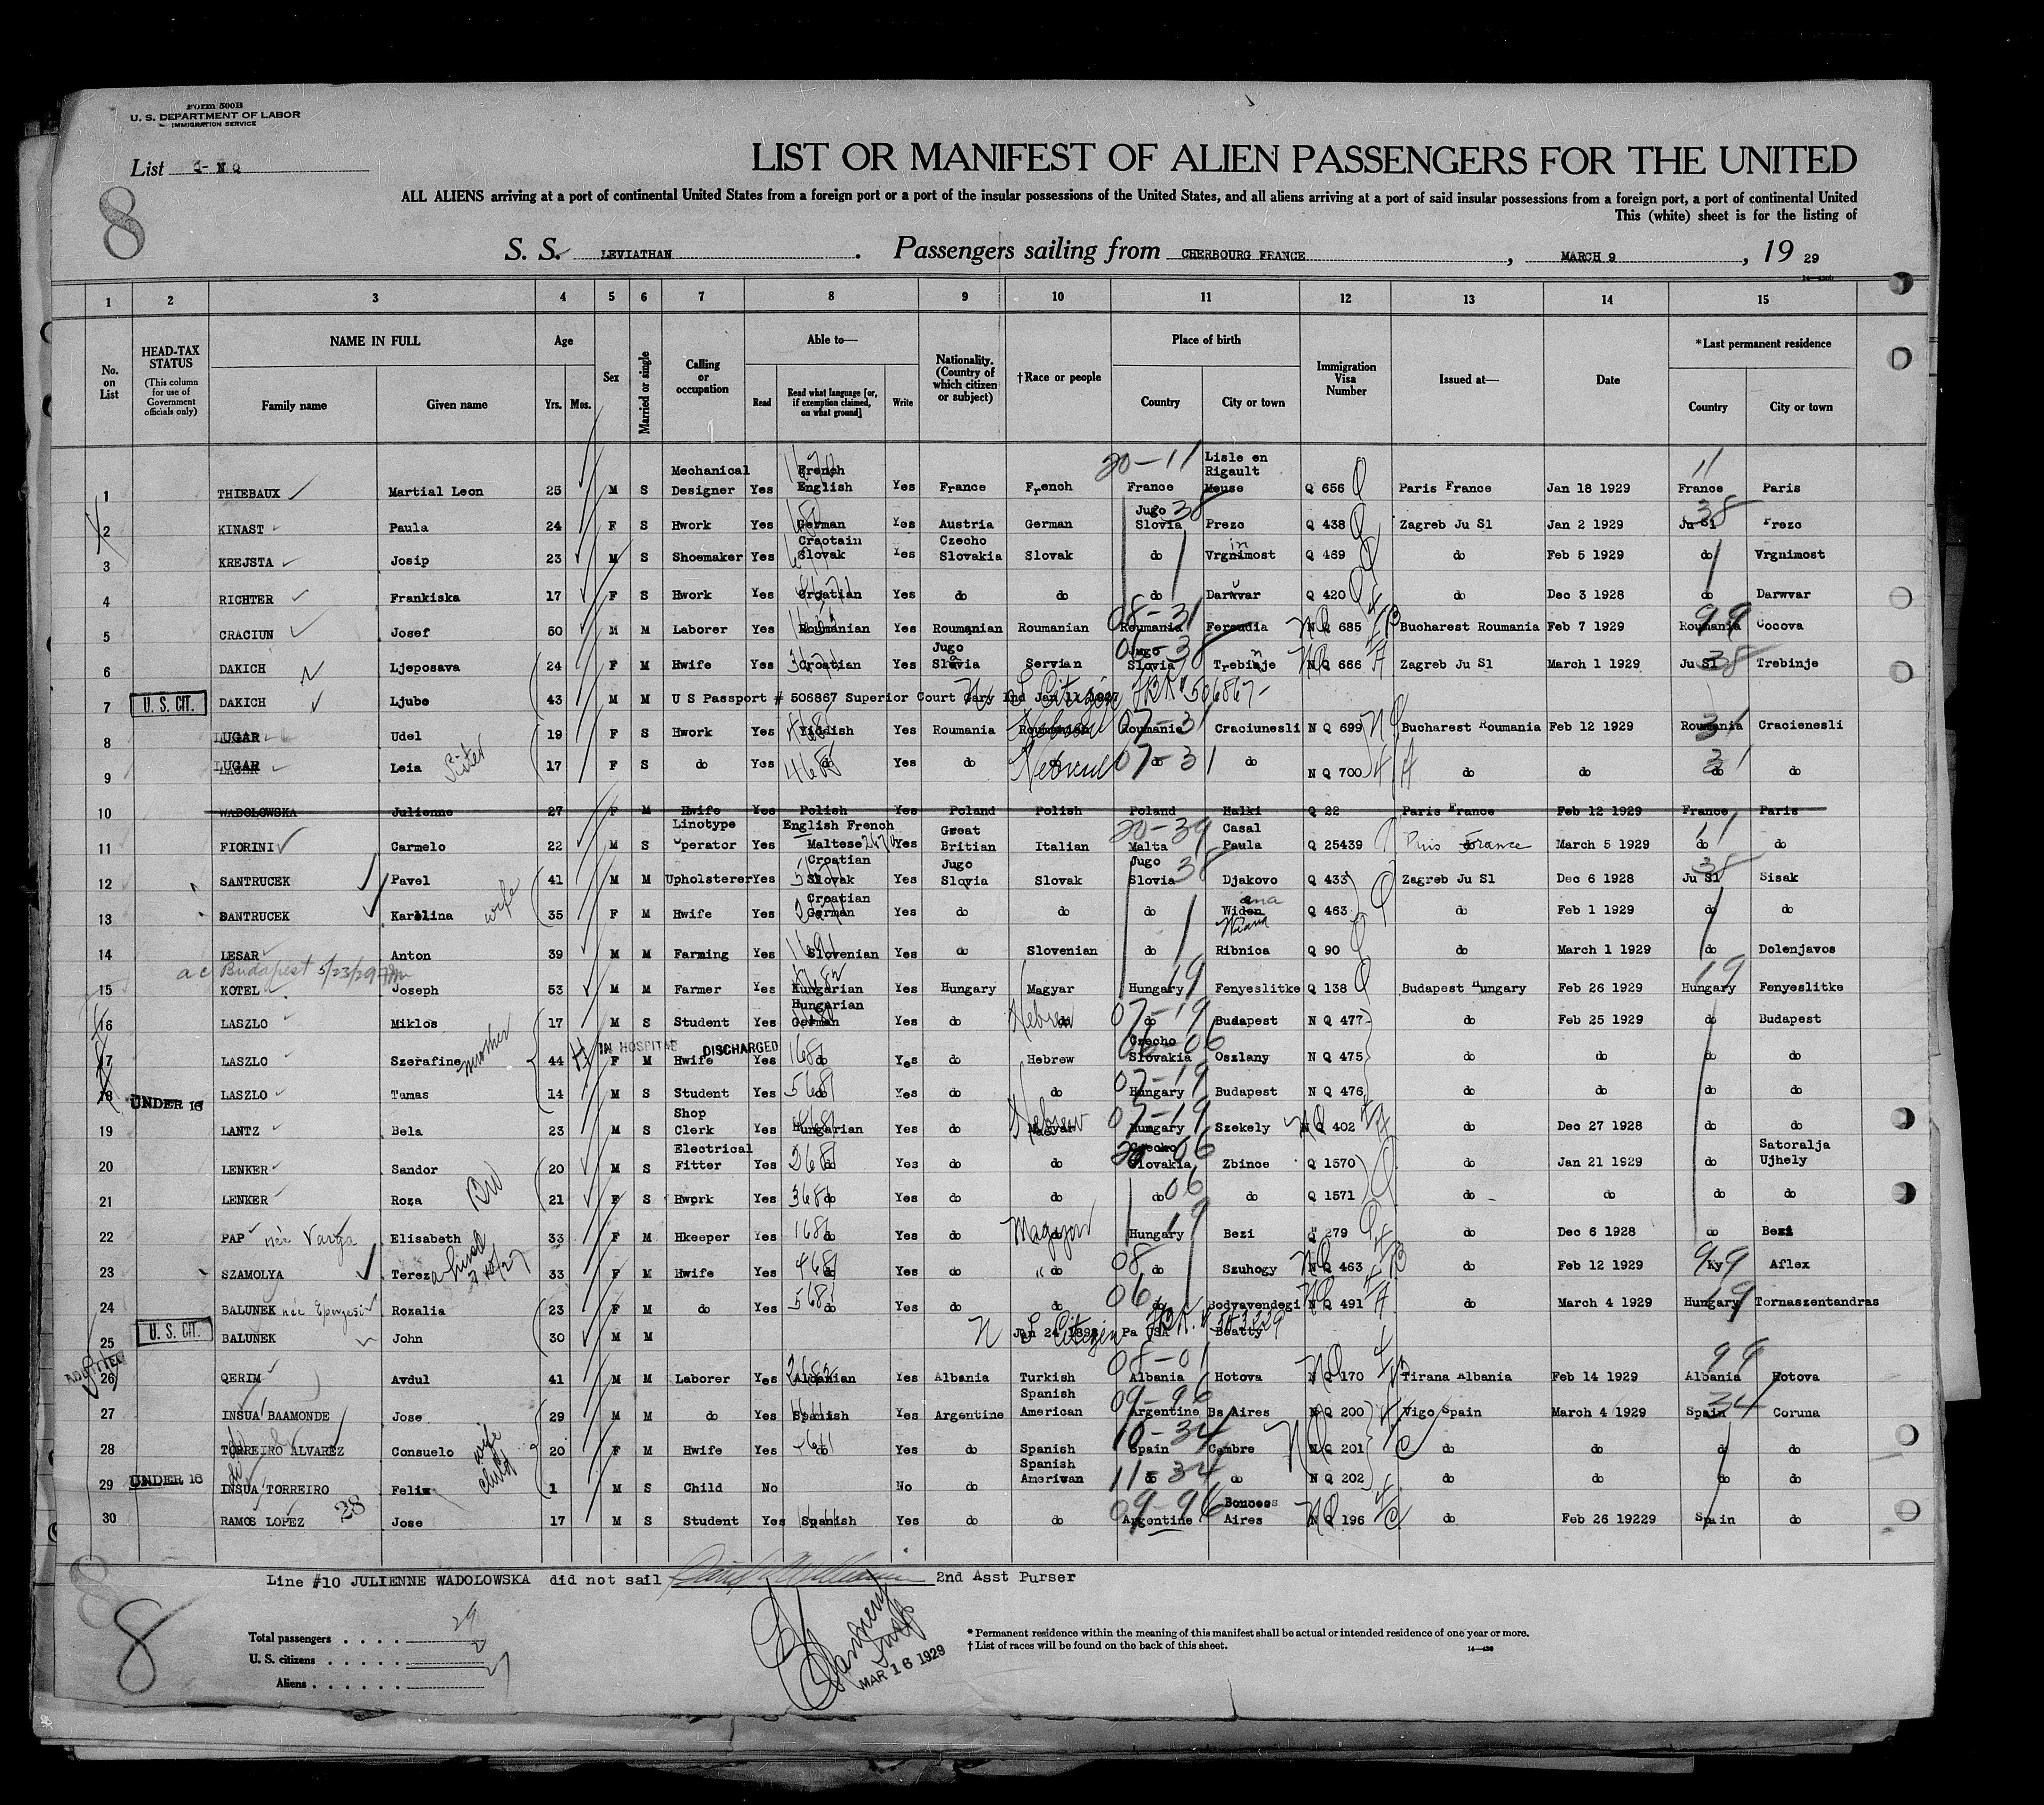 Form 500B
U. S. DEPARTMENT OF LABOR
IMMIGRATION SERVICE
List Q-NQ
8
LIST OR MANIFEST OF ALIEN PASSENGERS FOR THE UNITED
ALL ALIENS arriving at a port of continental United States from a foreign port or a port of the insular possessions of the United States, and all aliens arriving at a port of said insular possessions from a foreign port, a port of continental United
This (white) sheet is for the listing of
S. S. LEVIATHAN. Passengers sailing from CHERBOURG FRANCE, MARCH 9, 19 29
1 2 3 4 5 6 7 8 9 10 11 12 13 14 15
No. on List HEAD-TAX STATUS (This column for use of Government officials only) NAME IN FULL Family name Given name Age Yrs. Mos. Sex Married or single Calling or occupation Able to— Read Read what language [or, if exemption claimed, on what ground] Write Nationality. (Country of which citizen or subject) †Race or people Place of birth Country City or town Immigration Visa Number Issued at— Date *Last permanent residence Country City or town
1 THIEBAUX Martial Leon 25 M S Mechanical Designer Yes French English Yes France French 20-11 France Lisle en Rigault Meuse Q 656 Paris France Jan 18 1929 11 France Paris
2 KINAST Paula 24 F S Hwork Yes German Yes Austria German Jugo Slovia 38 Prezo Q 438 Zagreb Ju Sl Jan 2 1929 Ju Sl 38 Prezo
3 KREJSTA Josip 23 M S Shoemaker Yes Craotain Slovak Yes Czecho Slovakia Slovak do Vrgnimost Q 469 do Feb 5 1929 do Vrgnimost
4 RICHTER Frankiska 17 F S Hwork Yes Croatian Yes do do do Darwvar Q 420 do Dec 3 1928 do Darwvar
5 CRACIUN Josef 50 M M Laborer Yes Roumanian Yes Roumanian Roumanian 08-31 Roumania NQ 685 Bucharest Roumania Feb 7 1929 99 Roumania Cocova
6 DAKICH Ljeposava 24 F M Hwife Yes Croatian Yes Jugo Slavia Servian Jugo Slovia Trebinje NQ 666 Zagreb Ju Sl March 1 1929 Ju Sl 38 Trebinje
7 U. S. CIT. DAKICH Ljube 43 M M U S Passport # 506867 Superior Court Gary Ind Jan 11 1927 N S Citizen 506867
8 LUGAR Udel 19 F S Hwork Yes Yiddish Yes Roumania Roumanian Hebrew 07-31 Roumania Craciunesli N Q 699 Bucharest Roumania Feb 12 1929 Roumania 31 Cracienesli
9 LUGAR Leia Sister 17 F S do Yes 468 do Yes do Hebrew 07-31 do do N Q 700 do do do 31 do
10 WADOLOWSKA Julienne 27 F M Hwife Yes Polish Yes Poland Polish Poland Halki Q 22 Paris France Feb 12 1929 France Paris
11 FIORINI Carmelo 22 M S Linotype Operator Yes English French Maltese Yes Great Britian Italian 20-39 Malta Casal Paula Q 25439 Paris France March 5 1929 11 do do
12 SANTRUCEK Pavel 41 M M Upholsterer Yes Croatian Slovak Yes Jugo Slovia Slovak Jugo Slovia 38 Djakovo Q 433 Zagreb Ju Sl Dec 6 1928 Ju Sl 38 Sisak
13 SANTRUCEK Karolina wife 35 F M Hwife Yes Croatian German Yes do do do Widen Q 463 do Feb 1 1929 do do
14 LESAR Anton 39 M M Farming Yes Slovenian Yes do Slovenian do Ribnica Q 90 do March 1 1929 do Dolenjavos
a c Budapest 5/23/29
15 KOTEL Joseph 53 M M Farmer Yes Hungarian Yes Hungary Magyar Hungary 19 Fenyeslitke Q 138 Budapest Hungary Feb 26 1929 Hungary 19 Fenyeslitke
16 LASZLO Miklos 17 M S Student Yes Hungarian German Yes do Hebrew 07-19 do Budapest N Q 477 do Feb 25 1929 do Budapest
17 LASZLO Szerafine mother 44 IN HOSPITAL DISCHARGED F M Hwife Yes 168 do Yes do Hebrew Czecho Slovakia Oszlany N Q 475 do do do do
18 UNDER 16 LASZLO Tamas 14 M S Student Yes 568 do Yes do do 07-19 Hungary Budapest N Q 476 do do do do
19 LANTZ Bela 23 M S Shop Clerk Yes Hungarian Yes do Magyar Hebrew 07-19 Hungary Szekely NQ 402 do Dec 27 1928 do do
20 LENKER Sandor 20 M S Electrical Fitter Yes 368 do Yes do do Czecho Slovakia 06 Zbince Q 1570 do Jan 21 1929 do Satoralja Ujhely
21 LENKER Roza 21 F S Hwork Yes 368 do Yes do do do 06 do Q 1571 do do do do
22 PAP née Varga Elisabeth 33 F M Hkeeper Yes 168 do Yes do Magyar Hungary 19 Bezi " 279 do Dec 6 1928 do Bezi
23 SZAMOLYA Tereza 33 F M Hwife Yes 468 do Yes do do 08 do Szuhogy NQ 463 do Feb 12 1929 Aflex
24 BALUNEK née Rozalia 23 F M do Yes 568 do Yes do do 06 do Bodvavendegi NQ 491 do March 4 1929 Hungary 19 Tornaszentandras
25 U. S. CIT. BALUNEK John 30 M M N S Citizen Jan 24 1898 Pa USA Beatty
26 ADMITTED QERIM Avdul 41 M M Laborer Yes Albanian Yes Albania Turkish 08-01 Albania Hotova NQ 170 Tirana Albania Feb 14 1929 99 Albania Hotova
27 INSUA BAAMONDE Jose 29 M M do Yes Spanish Yes Argentine Spanish American 09-96 Argentine Bs Aires NQ 200 Vigo Spain March 4 1929 Spain 34 Coruna
28 TORREIRO ALVAREZ Consuelo wife 20 F M Hwife Yes do Yes do Spanish 10-34 Spain Cambre NQ 201 do do do do
29 UNDER 16 INSUA TORREIRO Felix child 1 M S Child No No do Spanish American 11-34 do do N Q 202 do do do do
30 RAMOS LOPEZ 28 Jose 17 M S Student Yes Spanish Yes do do 09-96 Argentine Bouoes Aires NQ 196 do Feb 26 19229 Spain do
Line #10 JULIENNE WADOLOWSKA did not sail 2nd Asst Purser
8
Total passengers . . . . 29
U. S. citizens . . . . . 2
Aliens . . . . . . 27
MAR 16 1929
* Permanent residence within the meaning of this manifest shall be actual or intended residence of one year or more.
† List of races will be found on the back of this sheet.